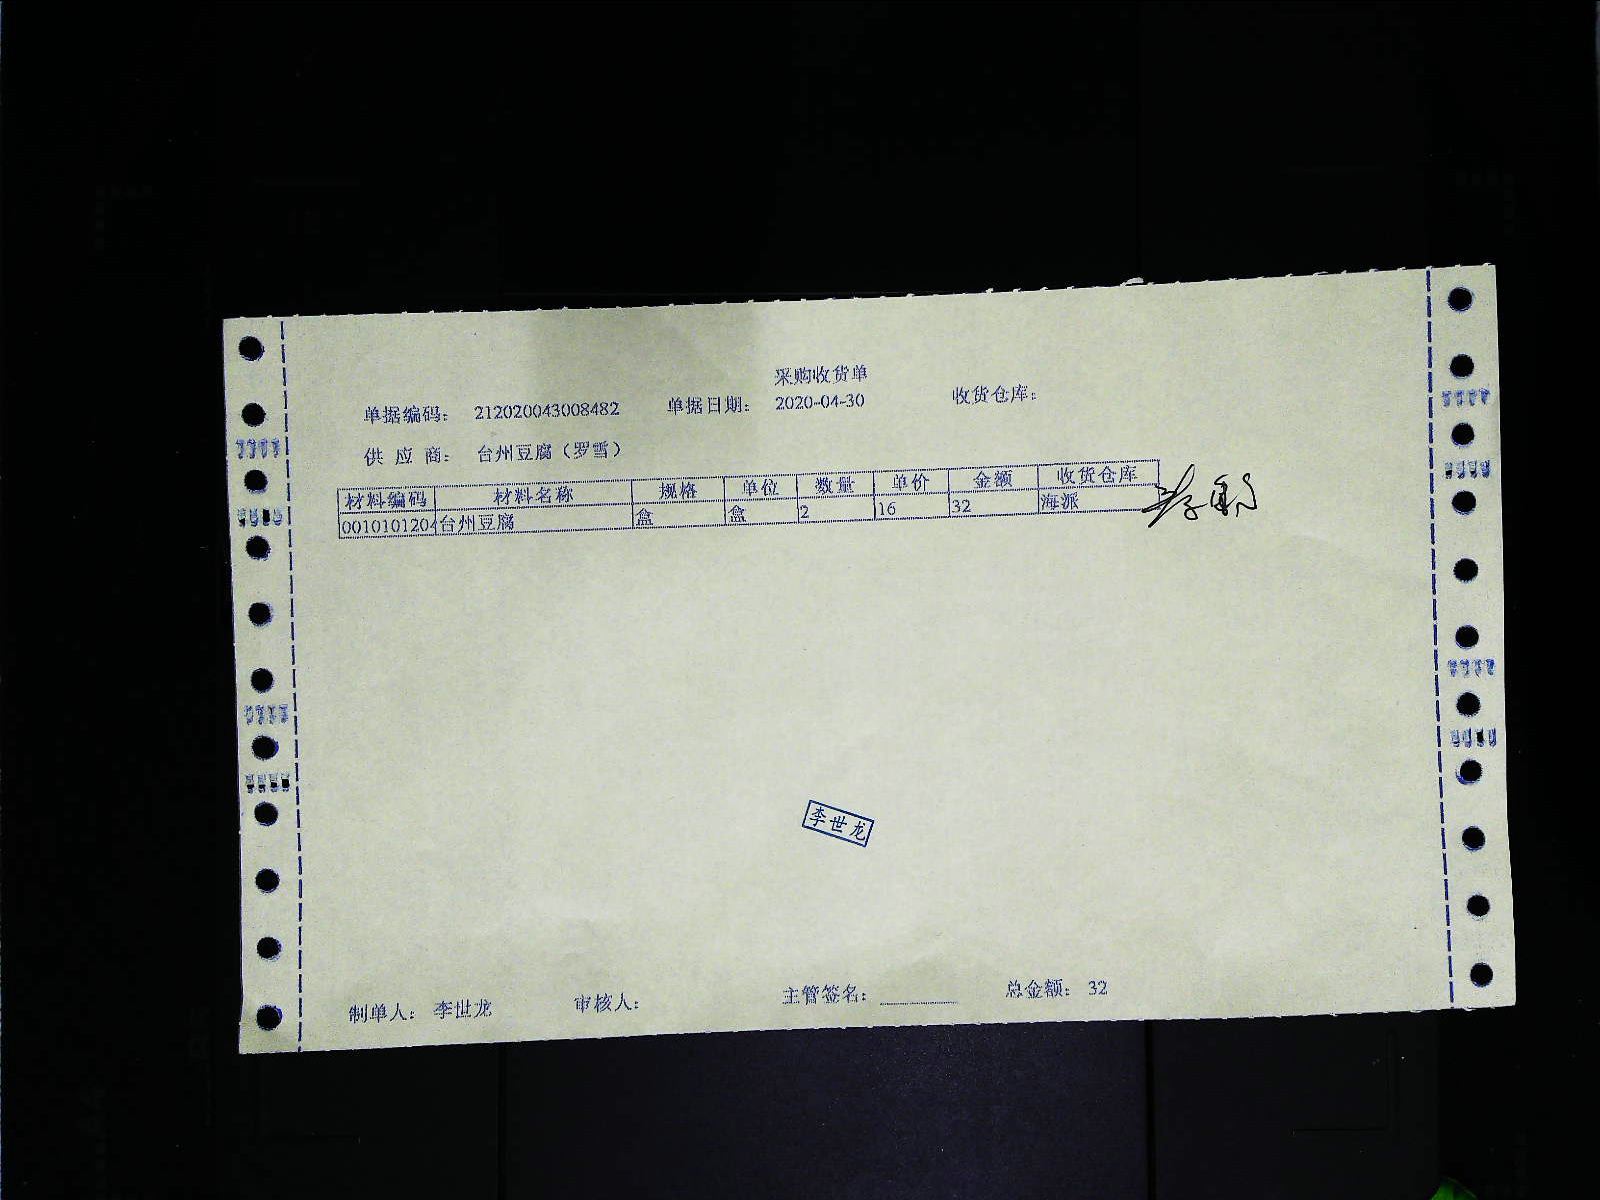 采购收货单
单据编码： 212020043008482 单据日期： 2020-04-30 收货仓库：
供 应 商： 台州豆腐（罗雪）
材料编码 材料名称 规格 单位 数量 单价 金额 收货仓库
0010101204 台州豆腐 盒 盒 2 16 32 海派
李世龙
制单人： 李世龙 审核人： 主管签名： 总金额： 32